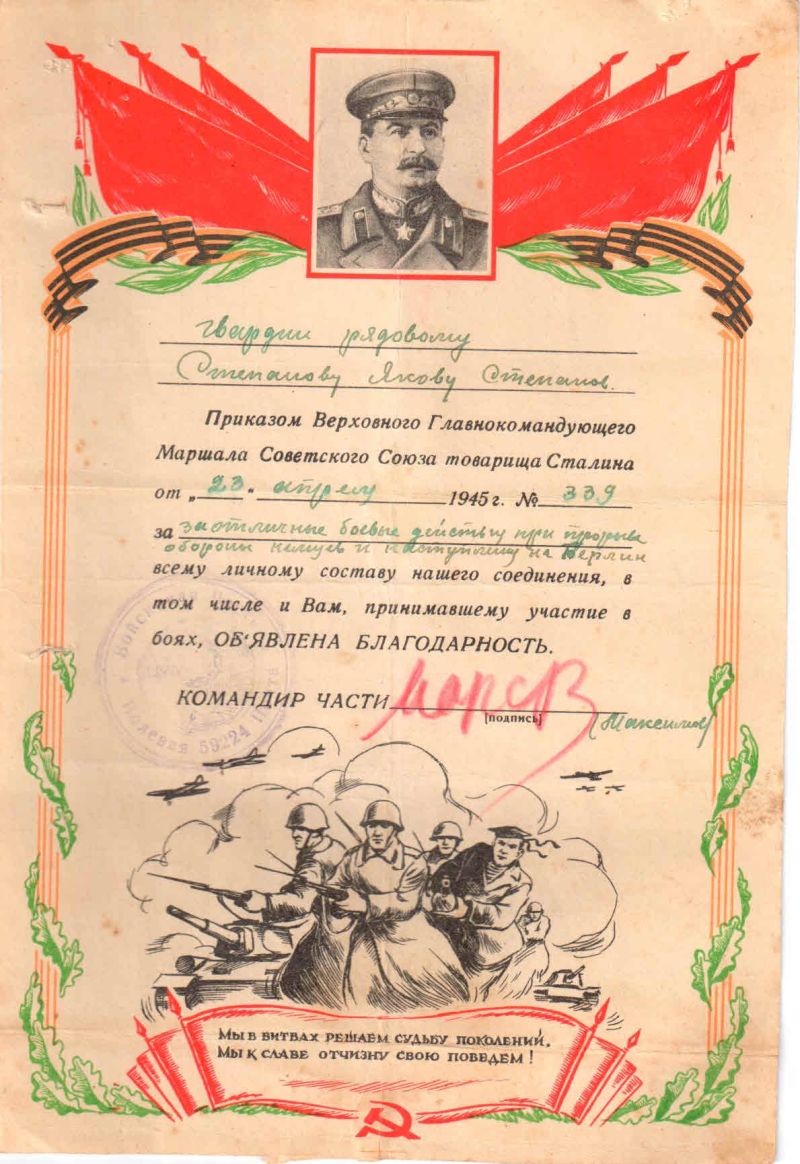 Гвардии рядовому
Степанову Якову Степанов.
Приказом Верховного Главнокомандующего
Маршала Советского Союза товарища Сталина
от „23“ апреля 1945 г. № 339
за за отличные боевые действия при прорыве
обороны немцев и наступлении на Берлин
всему личному составу нашего соединения, в
том числе и Вам, принимавшему участие в
боях, ОБ‘ЯВЛЕНА БЛАГОДАРНОСТЬ.
КОМАНДИР ЧАСТИ
[подпись]
Полевая 59224
МЫ В БИТВАХ РЕШАЕМ СУДЬБУ ПОКОЛЕНИЙ,
МЫ К СЛАВЕ ОТЧИЗНУ СВОЮ ПОВЕДЕМ!